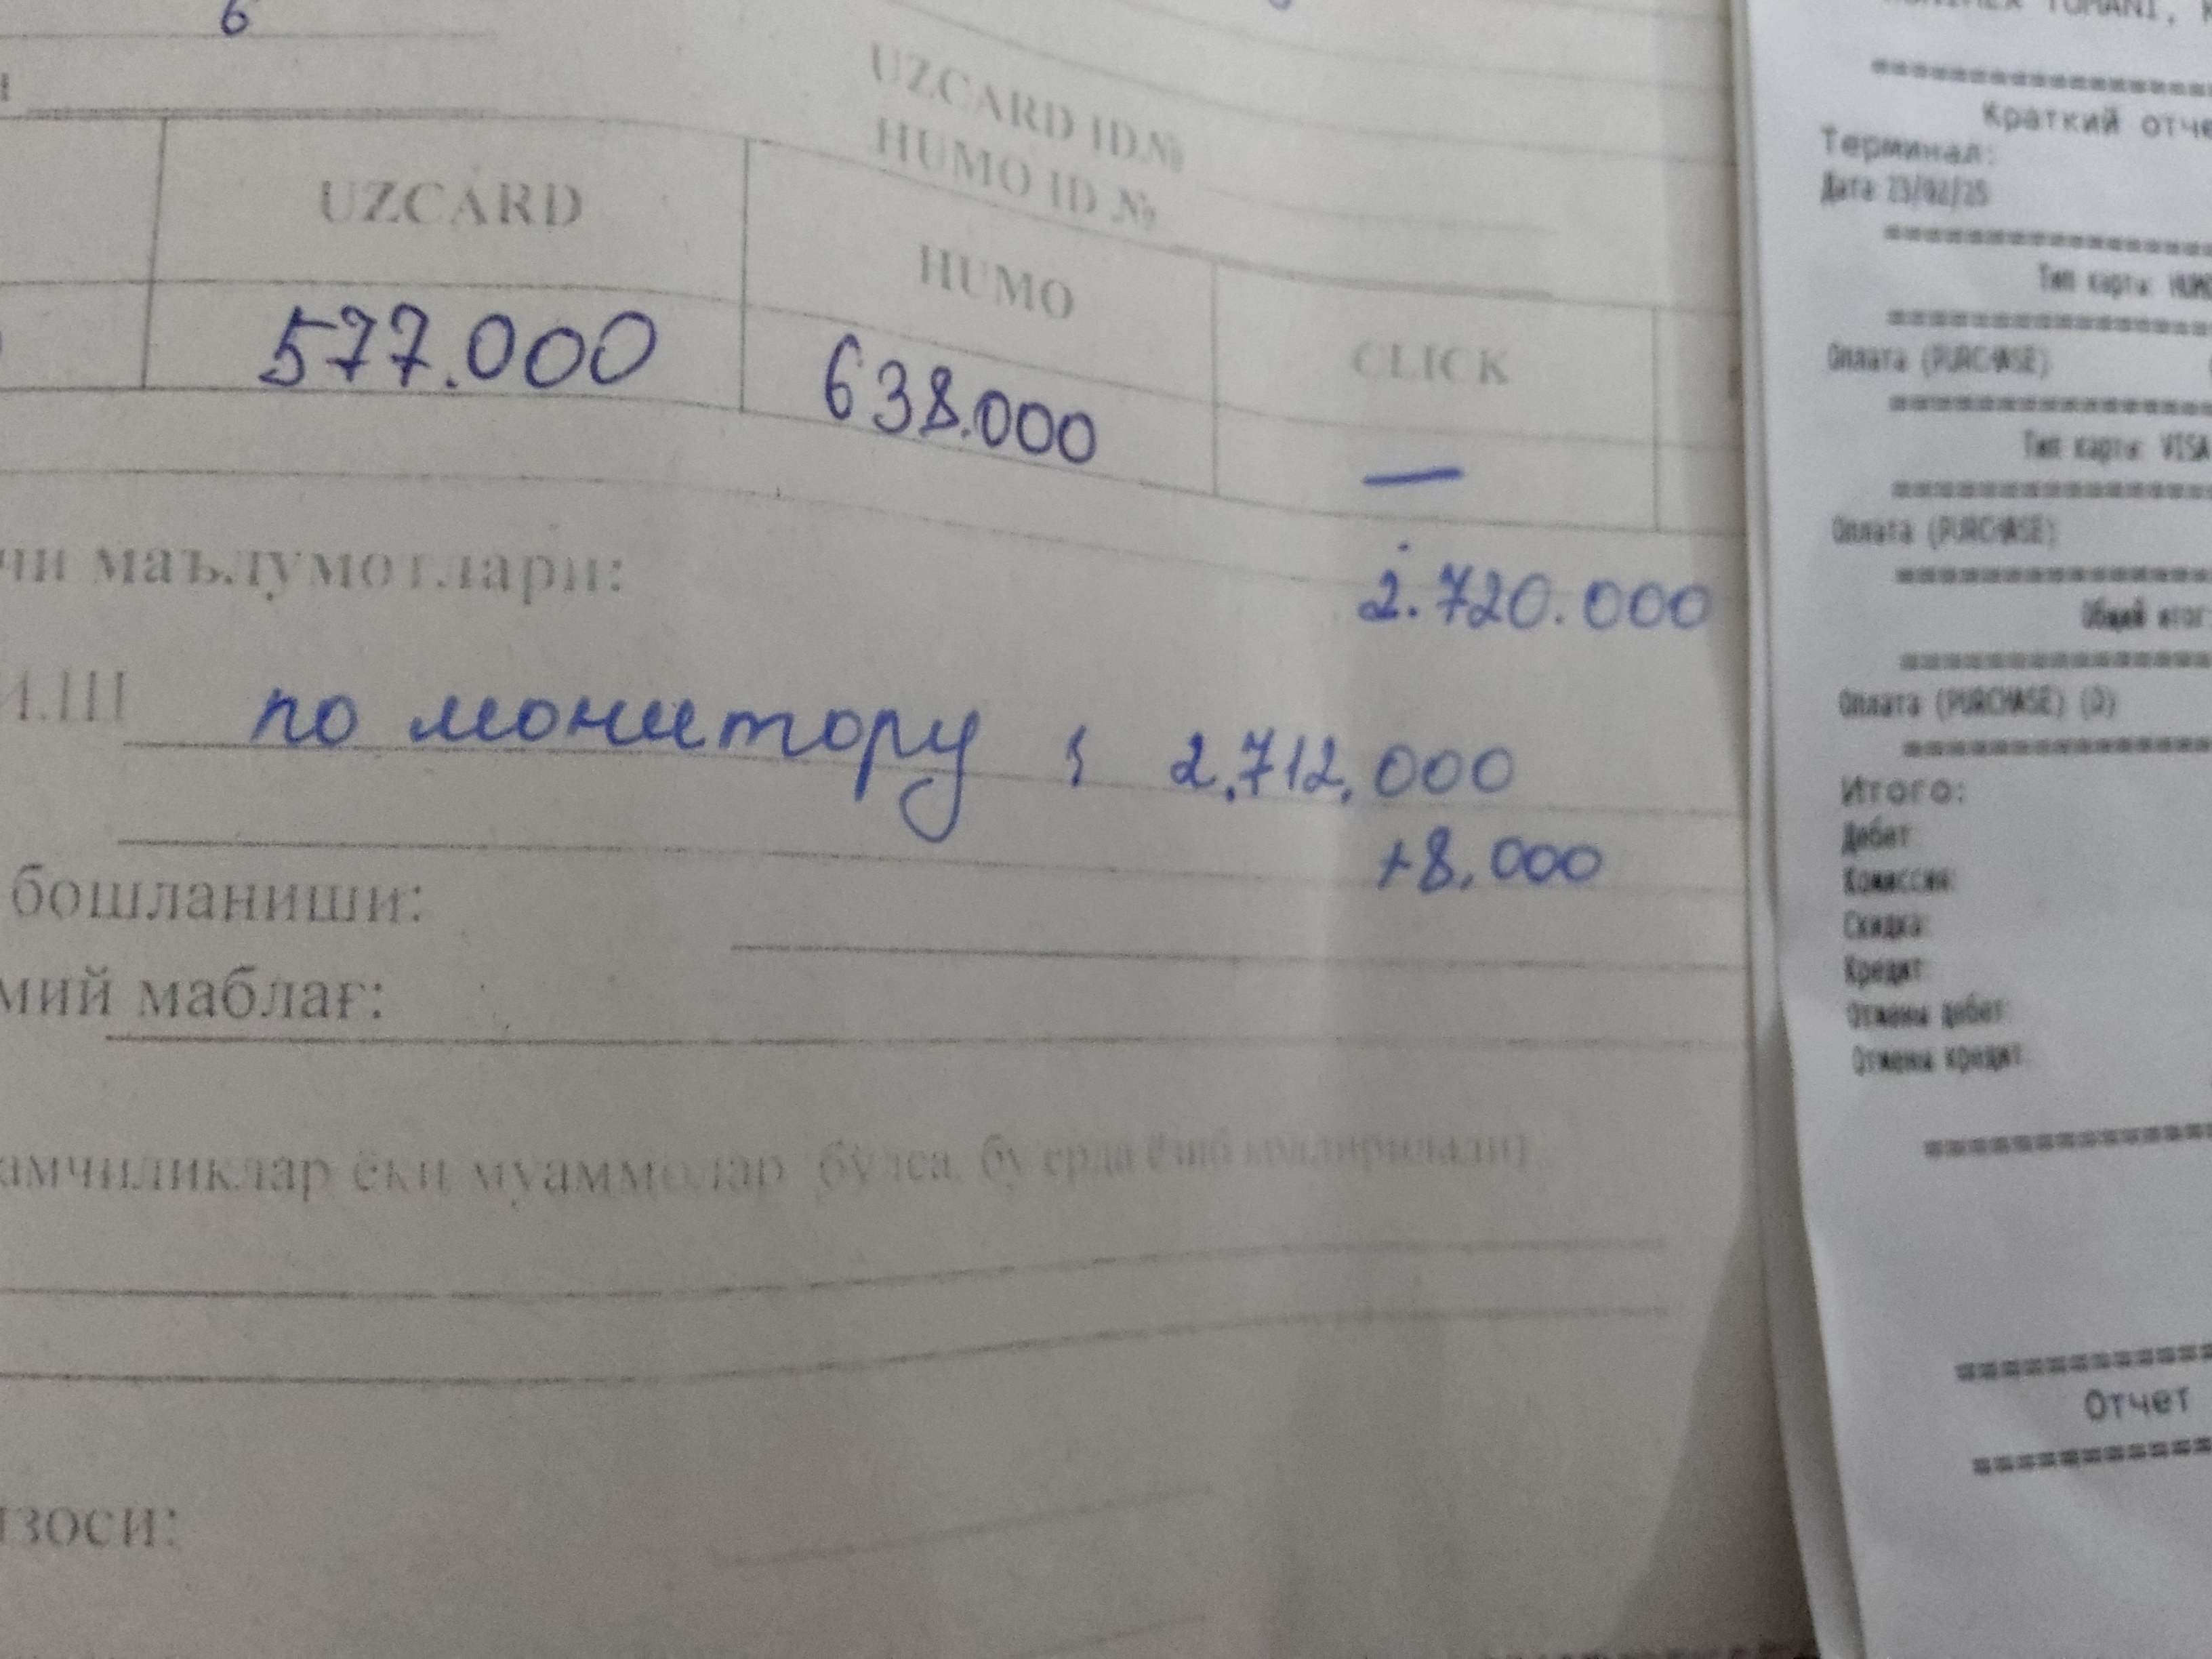 6
UZCARD ID.№
HUMO ID №
UZCARD HUMO CLICK
577.000 638.000 —
чи маълумотлари:
2.720.000
И.Ш по монитору : 2.712.000
+8.000
бошланиши:
мий маблағ:
амчиликлар ёки муаммолар бўлса, бу ерда ёзиб қолдирилади)
изоси:
TOMANI,
====================
Краткий отче
Терминал:
Дата 23/02/25
====================
Тип карты: HUMO
====================
Оплата (PURCHASE) (
====================
Тип карты: VISA
====================
Оплата (PURCHASE)
====================
Общий итог:
====================
Оплата (PURCHASE) (0)
====================
Итого:
Дебет:
Комиссия:
Скидка:
Кредит:
Отмена дебет:
Отмена кредит:
====================
====================
Отчет
====================